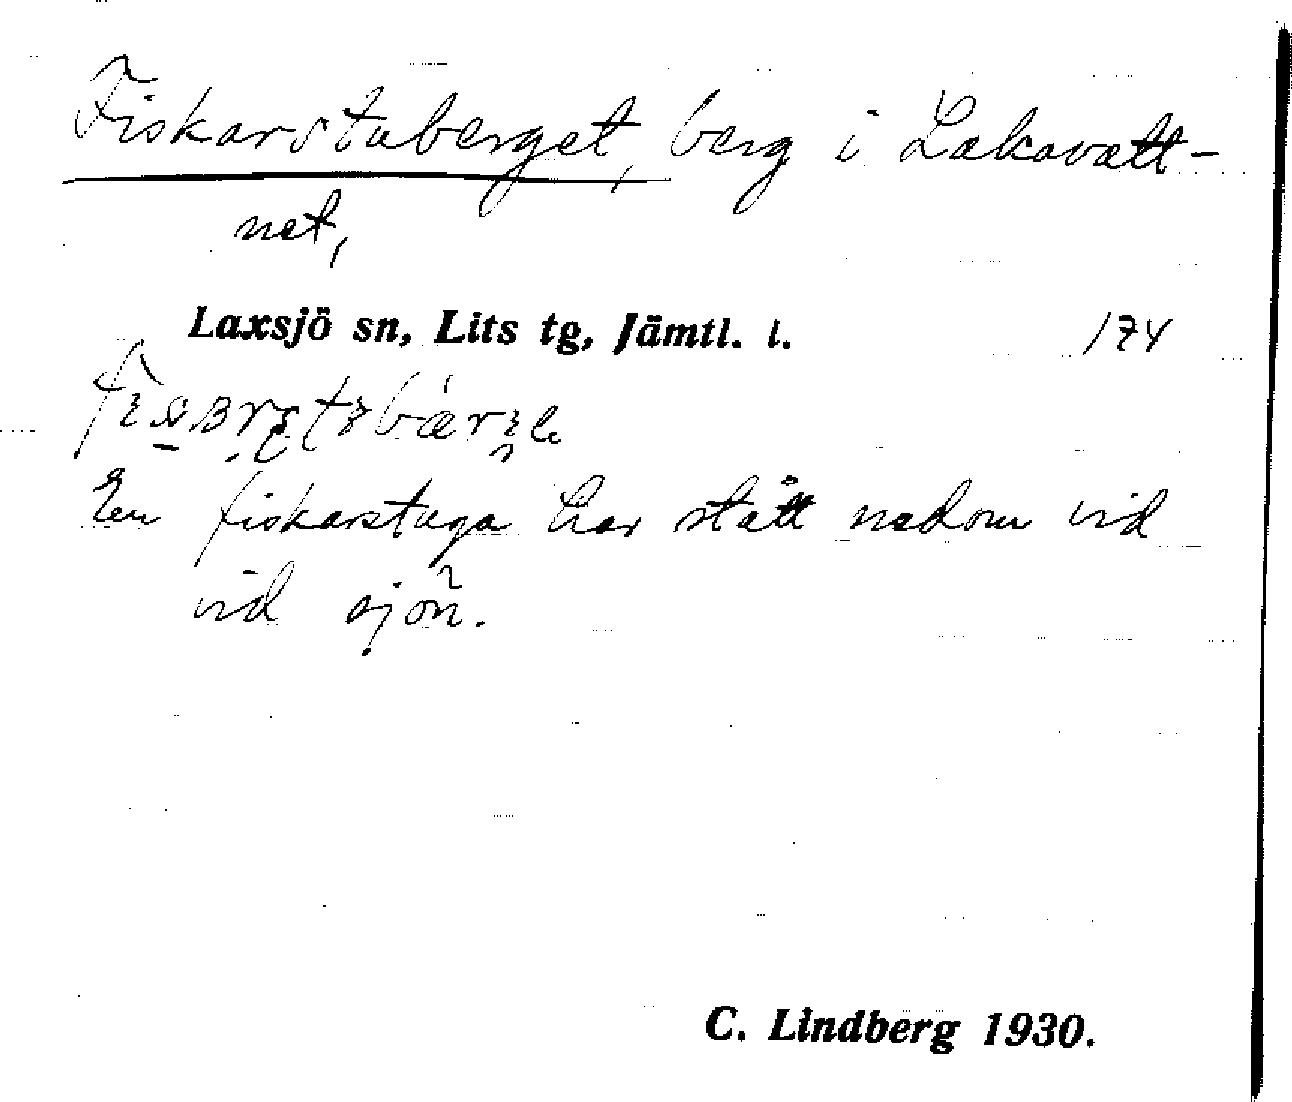 Fiskarstuberget, berg i Lakavatt-
net,
Laxsjö sn, Lits tg, Jämtl. l. 174
En fiskarstuga har stått nedom vid
vid sjön.
C. Lindberg 1930.